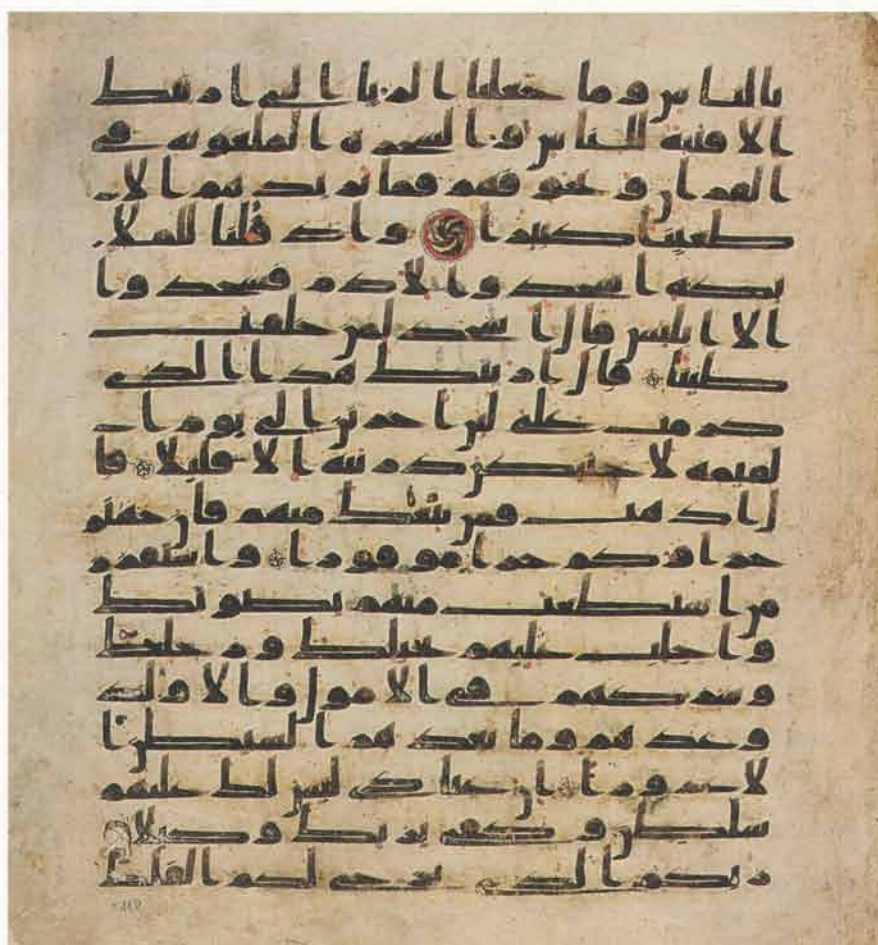 بالناس وما جعلنا الريا التي ارينك
الا فتنة للناس والشجرة الملعونة في
القران ونخوفهم فما يزيدهم الا
طغينا كبيرا واذ قلنا للملا
ئكة اسجدوا لادم فسجدوا
الا ابليس قال اسجد لمن خلقت
طينا قال اريتك هذا الذي
كرمت علي لئن اخرتن الى يوم ا
لقيمة لاحتنكن ذريته الا قليلا قا
ل اذهب فمن تبعك منهم فان جهنم
جزاوكم جزا موفورا واستفزز
من استطعت منهم بصوتك
واجلب عليهم بخيلك ورجلك
وشركهم في الامول والاولد
وعدهم وما يعدهم الشيطن ا
لا غرورا ان عبادي ليس لك عليهم
سلطن وكفى بربك وكيلا
ربكم الذي يزجي لكم الفلك